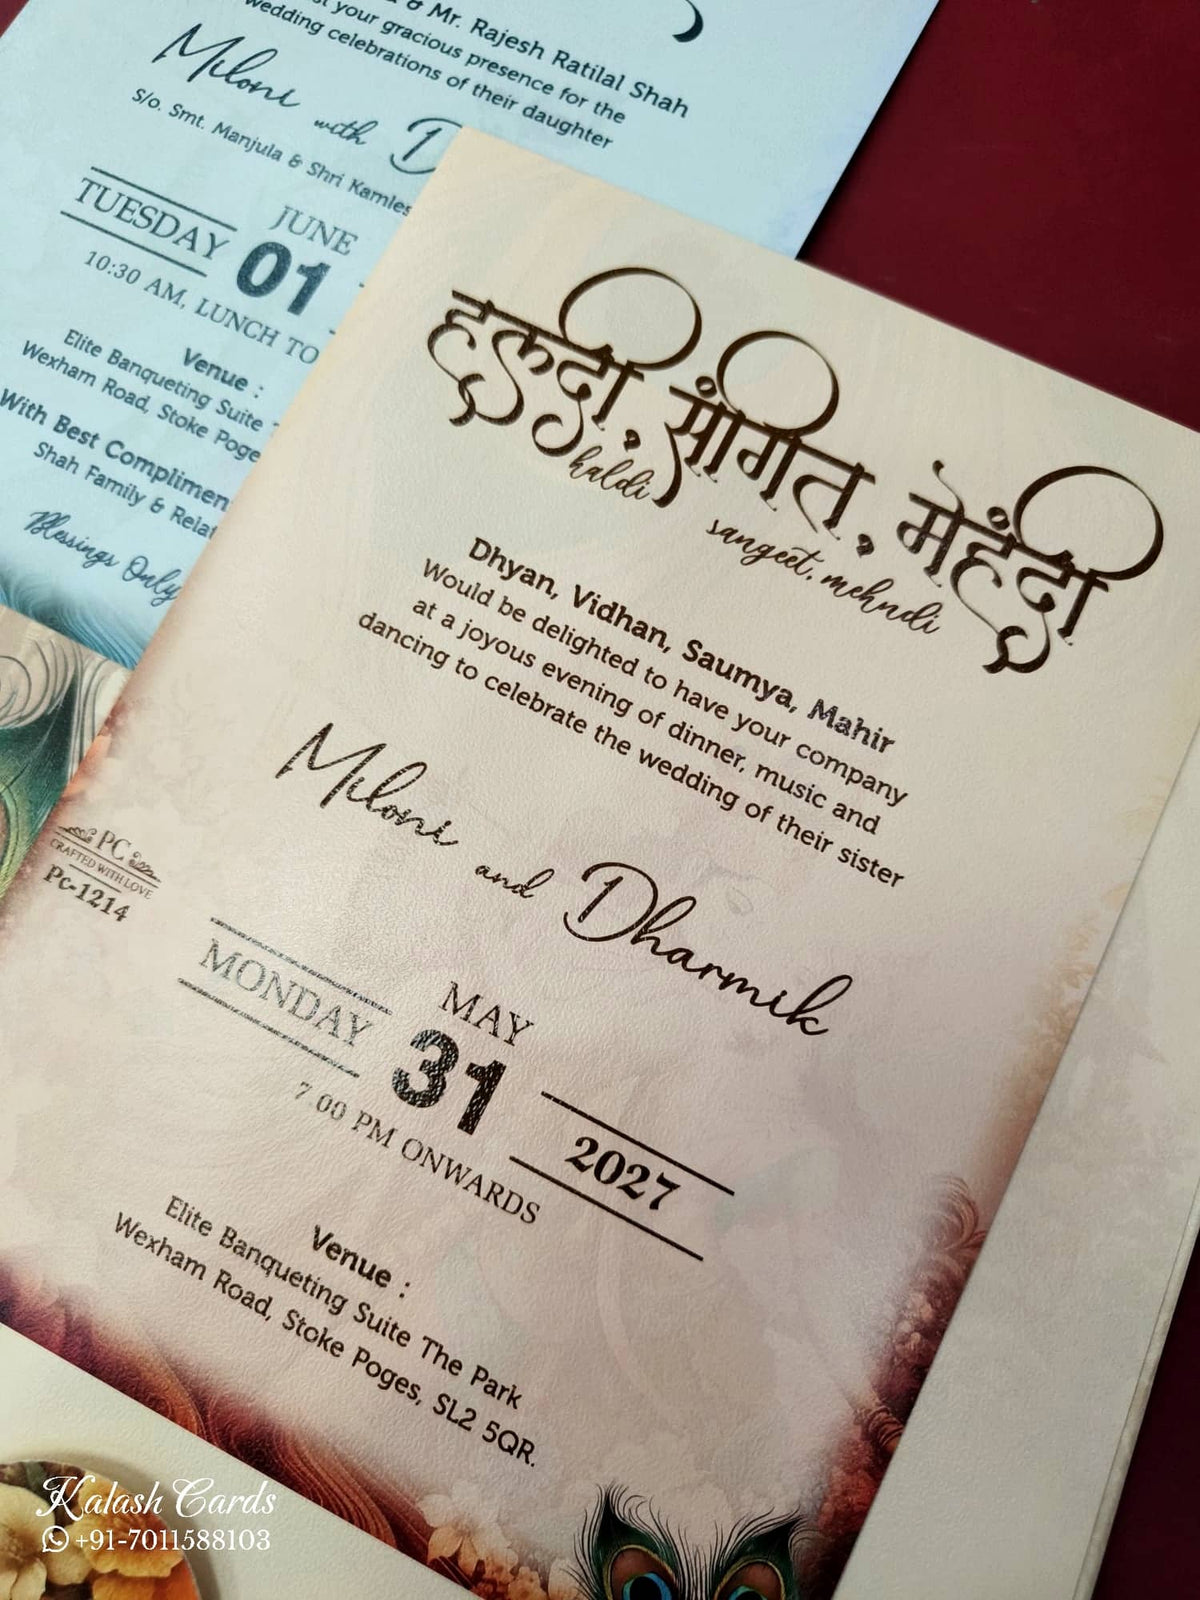 & Mr. Rajesh Ratilal Shah
your gracious presence for the
wedding celebrations of their daughter
Miloni with D
S/o. Smt. Manjula & Shri Kamles
TUESDAY
JUNE
01
10:30 AM, LUNCH TO
Venue :
Elite Banqueting Suite
Wexham Road, Stoke Poge
With Best Complimen
Shah Family & Relat
Blessings Only
हल्दी, संगीत, मेहंदी
haldi
sangeet, mehndi
Dhyan, Vidhan, Saumya, Mahir
Would be delighted to have your company
at a joyous evening of dinner, music and
dancing to celebrate the wedding of their sister
Miloni
and Dharmik
PC
CRAFTED WITH LOVE
Pc-1214
MONDAY
MAY
31
2027
7.00 PM ONWARDS
Venue :
Elite Banqueting Suite The Park
Wexham Road, Stoke Poges, SL2 5QR.
Kalash Cards
+91-7011588103